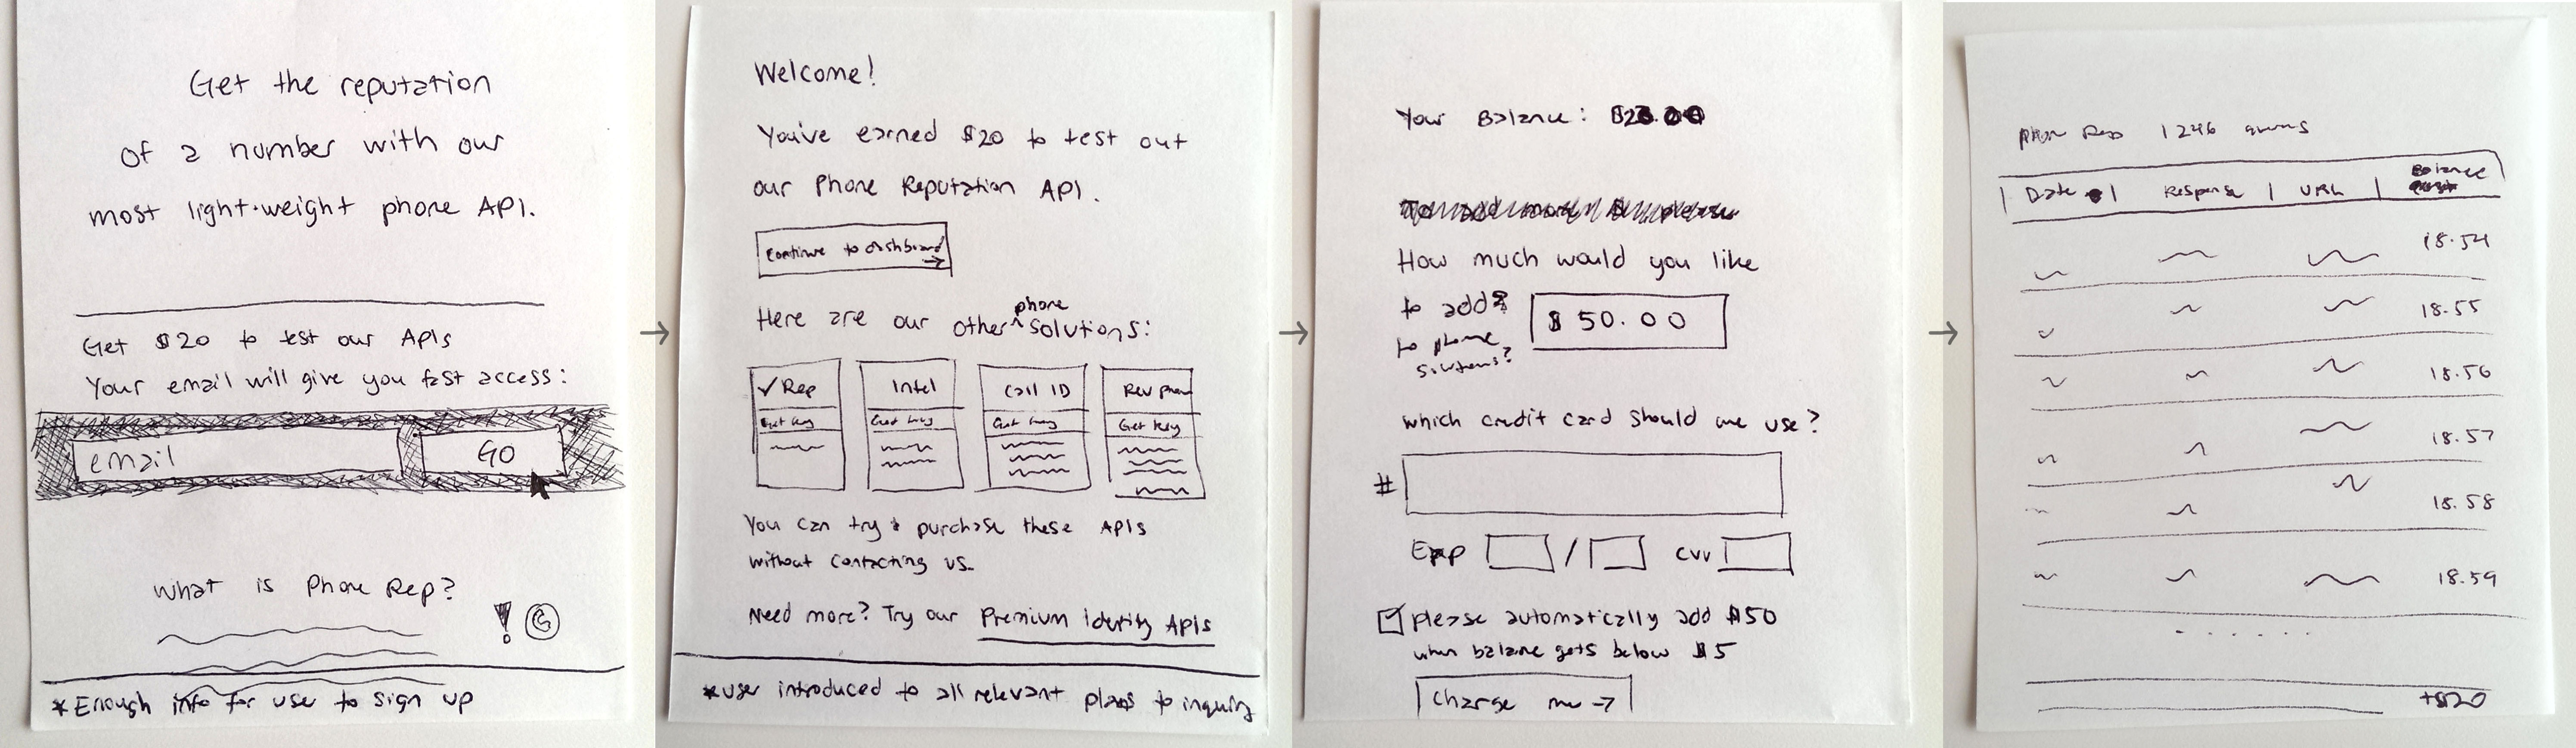 Get the reputation
of a number with our
most light-weight phone API.
Get $20 to test our APIs
Your email will give you fast access:
email
GO
What is Phone Rep?
! G
*Enough info for user to sign up
Welcome!
You've earned $20 to test out
our Phone Reputation API.
Continue to dashboard
→
Here are our other phone solutions:
✓ Rep
Get key
Intel
Get key
Call ID
Get key
Rev phone
Get key
You can try & purchase these APIs
without contacting us.
Need more? Try our Premium Identity APIs
*user introduced to all relevant plans to inquiry
Your Balance:
How much would you like
to add?
to phone
solutions?
$50.00
which credit card should we use?
#
Exp / CVV
please automatically add $50
when balance gets below $5
Charge me →
Phone Rep 1246
Date | Response | URL | Balance
18.54
18.55
18.56
18.57
18.58
18.59
+$20